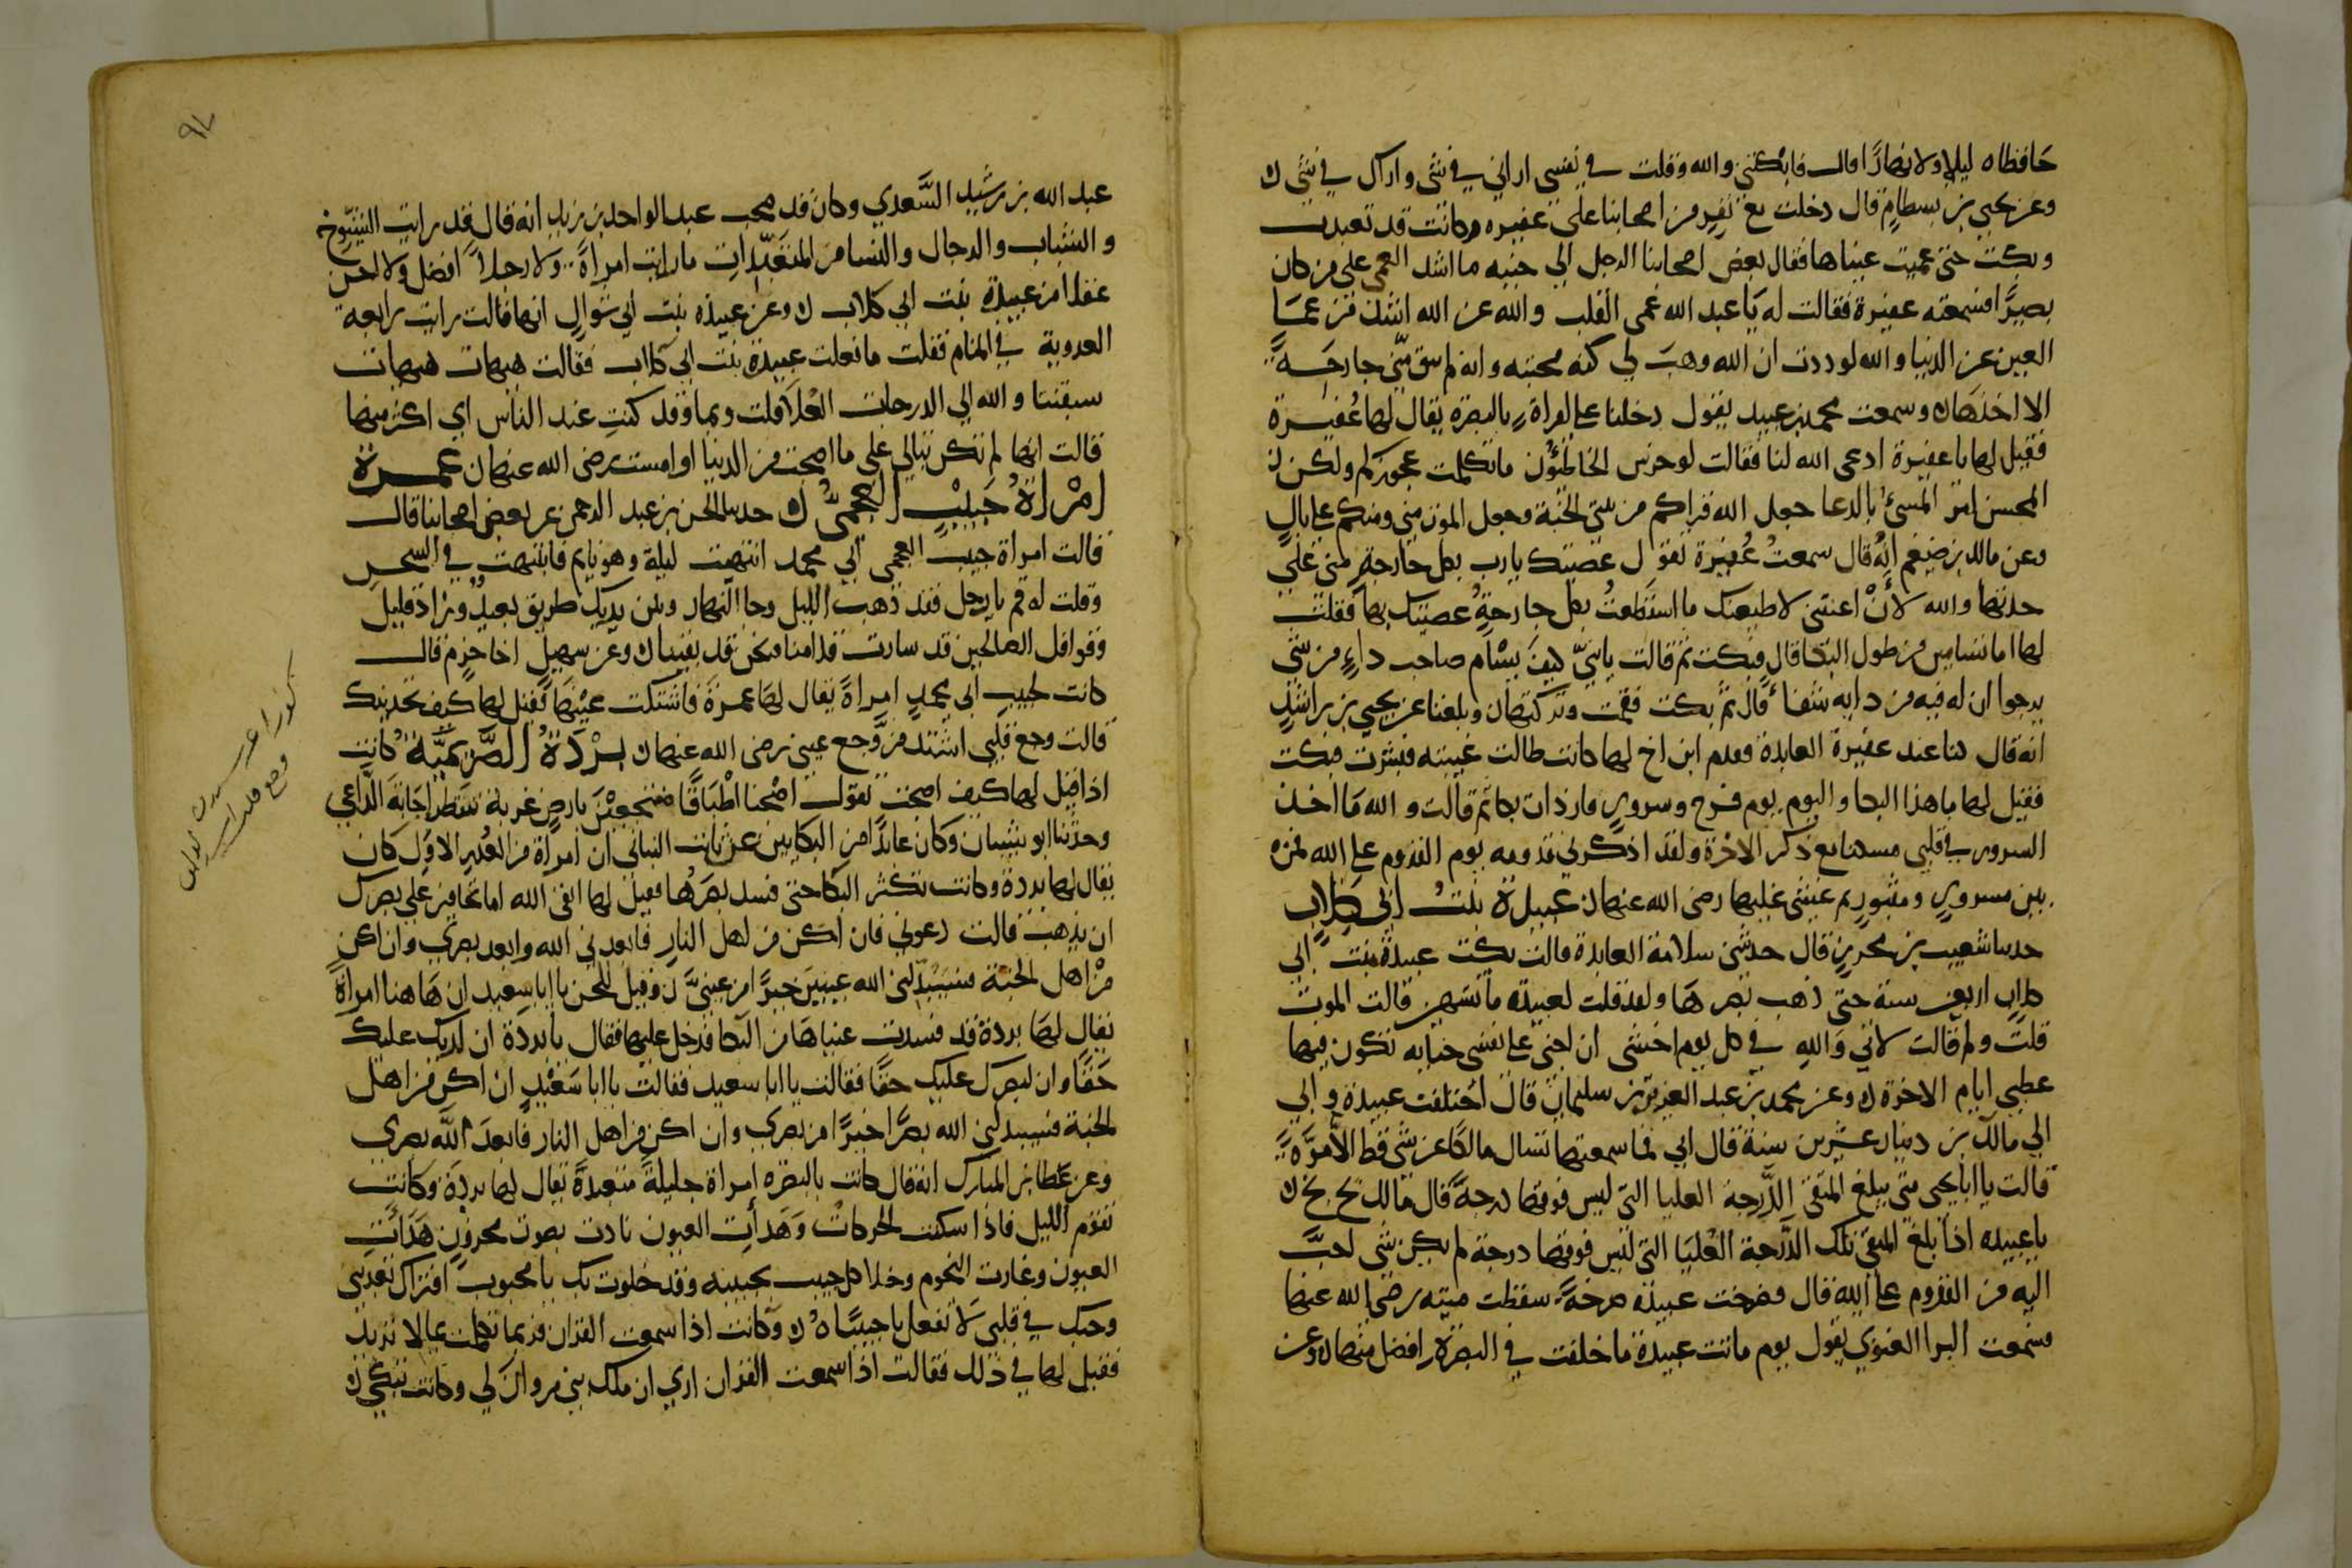 حافظاه ليلا ولا نهارًا قال فابكتني والله وقلت في نفسي اراني في شي واراك في شي ه
وعن يحيى بن بسطام قال دخلت مع نفر من اصحابنا على عفيره وكانت قد تعبدت
وبكت حتى عميت عيناها فقال بعض اصحابنا الرجل الي جنبه ما اشد العمى على من كان
بصيرًا فسمعته عفيرة فقالت له يا عبد الله عمى القلب والله عن الله اشد من عمَا
العين عن الدنيا والله لوددت ان الله وهبَ لي كنه محبته وانه لم يبق منّي جارحَة
الا اخذهَا ه وسمعت محمد بن عبيد يقول دخلنا على امراة بالبصره يقال لها عُفيرة
فقيل لها يا عفيرة ادعى الله لنا فقالت لو خرس الخاطئون ما تكلمت عجوزكم ولكن
المحسن امر المسئ بالدعا جعل الله قراكم من بيتي الجنة وجعل الموت مني ومنكم على بالٍ
وعن مالك بن ضيغم انهُ قال سمعتُ عُفيرة تقول عصيتك يا رب بكل جارحةٍ منى على
حدتها والله لأنْ اعنتني لاطيعنك ما استطعتُ بكل جارحةٍ عصيتك بها فقلت
لها اما تسامين من طول البكا قال فبكت ثم قالت يا بنيّ كيفَ يسْام صاحب داءٍ من شي
يرجوا ان له فيه من دايه شفاءً قال ثم بكت فقمت وتركتها ه وبلغنا عن يحيي بن راشد
انه قال كنا عند عفيرة العابدة فقدم ابن اخ لها كانت طالت غيبته فبشرت فبكت
فقيل لها ما هذا البكا واليوم يوم فرح وسرورٍ فازدات بكا ثم قالت والله مَا اخذ
السرور في قلبي مسكنا مع ذكر الاخرة ولقد اذكرني قدومه يوم القدوم على الله فمن
بين مسرورٍ ومثبورٍ ثم غشى عليها رضى الله عنها ه عبيدة بنتُ ابي كلابٍ
حدثنا شعيب بن محرز قال حدثني سلامة العابدة قالت بكت عبيدة بنت ابي
كلاب اربعين سنة حتى ذهب بصرهَا ولقد قلت لعبيدة ما تشتهين قالت الموت
قلتَ ولم قالت لاني وَالله في كل يوم اخشى ان اجنى على نفسى جنايه تكون فيها
عطبي ايام الاخرة ه وعن محمد بن عبد العزيز بن سليمان قال اختلفت عبيدة وابي
الي مالك بن دينار عشرين سنة قال ابي فما سمعتها تسال مالكًا عن شى قط الا مرَّة
قالت يا ابا يحيى متى يبلغ المتقى الدَّرجة العليا التي ليس فوقها درجة قال مالك بخ بخ
يا عبيده اذا بلغ المتقى تلك الدَّرجة العُليَا التي ليس فوقها درجة لم يكن شي احبَّ
اليه من القدوم على الله قال فصرخت عبيدة صرخةً سقطت ميته رضى الله عنها
وسمعت البرا الغنوي يقول يوم ماتت عبيدة ما خلفت في البصرة افضل منها ه وعن
٩٧
عبد الله بن رشيد السَّعدي وكان قد صحب عبد الواحد بن زيد انه قال قد رايت الشيُوخ
والشباب والرجال والنسا من المتعبِّدات ما رايت امراةً ولا رجلاً افضل ولا احسن
عقلا من عبيدة بنت ابي كلاب ه وعن عبيده بنت ابي شوال انها قالت رايت رابعة
العدوية في المنام فقلت ما فعلت عبيدة بنت ابي كلاب فقالت هيهات هيهات
سبقتنا والله الي الدرجات العْلَا قلت وبما وقد كنتِ عند الناس اي اكثر منها
قالت انها لم تكن تبالي على ما اصبحت من الدنيا او امست رضى الله عنها ه عمرة
امْراةُ حَبيبٍ العجميُّ ه حدثنا الحسن بن عبد الرحمن عن بعض اصحابنا قال
قالت امراة حبيب العجمى ابي محمد انتبهت ليلة وهو نايم فانتبهت في السحر
وقلت له قم يا رجل فقد ذهب الليل وجا النهار وبين يديك طريق بعيدٌ وزاد قليل
وقوافل الصالحين قد سارت قدامنا ونحن قد بقينا ه وعن سهيل اخا حزم قال
كانت لحبيب ابي محمدٍ امراةً يقال لهَا عمرةَ فاشتكت عيْنهَا فقيل لها كيف تجدينك
قالت وجع قلبي اشتد من وَجع عيني رضى الله عنها ه بَرْدَةُ الصَّريميَّة كانت
اذا قيل لها كيف اصبحت تقول اصْبحنا اضْيَافًا منتجعيْن بارضٍ غربة ننتظر اجَابةَ الدَّاعي
وحدَّثنا ابو شيبان وكان عابدًا من البكايين عن ثابت البناني ان امراة من العُبدِ الاوَل كان
يقال لها بردة وكانت تكثر البكا حتى فسد بصرُها فقيل لها اتقى الله اما تخافين على بصرك
ان يذهب قالت دعوني فان اكن من اهل النار فابعدني الله وابعد بصري وان اكن
منْ اهل الجنة فسَيبدّلني الله عينين خيرًا من عينيَّ ه وقيل للحسن يا ابا سعيد ان هَاهنا امراة
يقال لهَا بردة قد فسدت عيناهَا من البكا فدخل عليها فقال يا بردة ان لبدنك عليك
حَقًّا وان لبصرك عليك حقًّا فقالت يا ابا سعيد فقالت يا ابا سَعْيدٍ انْ اكن من اهل
الجنة فسيبدلني الله بصرًا خيرًا من بصري وان اكن من اهل النار فابعدَ اللَّه بصرى
وعن عَطا بن المبارك انه قال كانت بالبصره امراة جليلةً متعبدةً يقال لها بردة وكانت
تقوم الليل فاذا سكنت الحركاتْ وَهَدأتِ العيون نادت بصوت محزونٍ هَدَأتِ
العيون وغارت النجوم وخلا كل حبيب بحبيبه وقد خلوت بك يا محبوب افتراك تعذبني
وحبك في قلبى لا تفعل يا حبيبَاهُ ه وكانت اذا سمعت القران فربما تكلمت بما لا تريد
فقيل لها في ذلك فقالت اذا سمعت القران اري ان ملك بني مروان لي وكانت تبكي ه